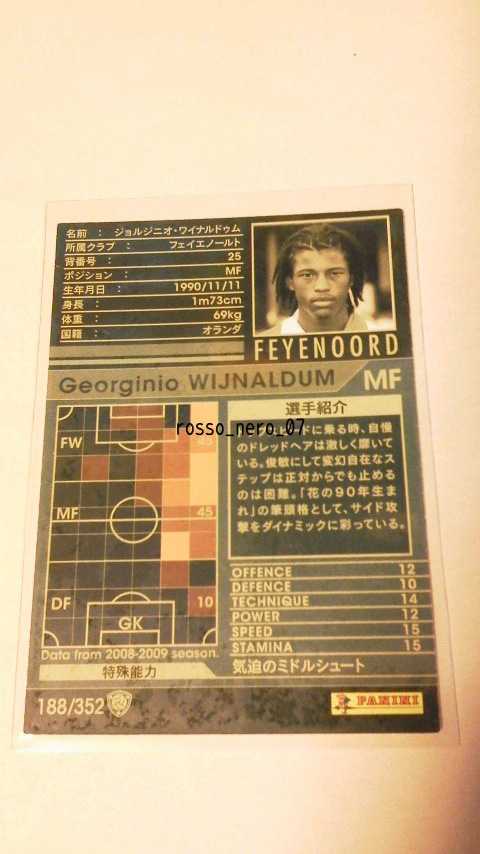 名前 : ジョルジニオ・ワイナルドゥム
所属クラブ : フェイエノールト
背番号 : 25
ポジション : MF
生年月日 : 1990/11/11
身長 : 1m73cm
体重 : 69kg
国籍 : オランダ
FEYENOORD
Georginio WIJNALDUM MF
選手紹介
rosso_nero_07
ドに乗る時、自慢
のドレッドヘアは激しく靡いて
いる。俊敏にして変幻自在なス
テップは正対からでも止める
のは困難。「花の90年生ま
れ」の筆頭格として、サイド攻
撃をダイナミックに彩っている。
FW
MF 45
DF 10
GK
Data from 2008-2009 season.
OFFENCE 12
DEFENCE 10
TECHNIQUE 14
POWER 12
SPEED 15
STAMINA 15
特殊能力
気迫のミドルシュート
188/352
PANINI